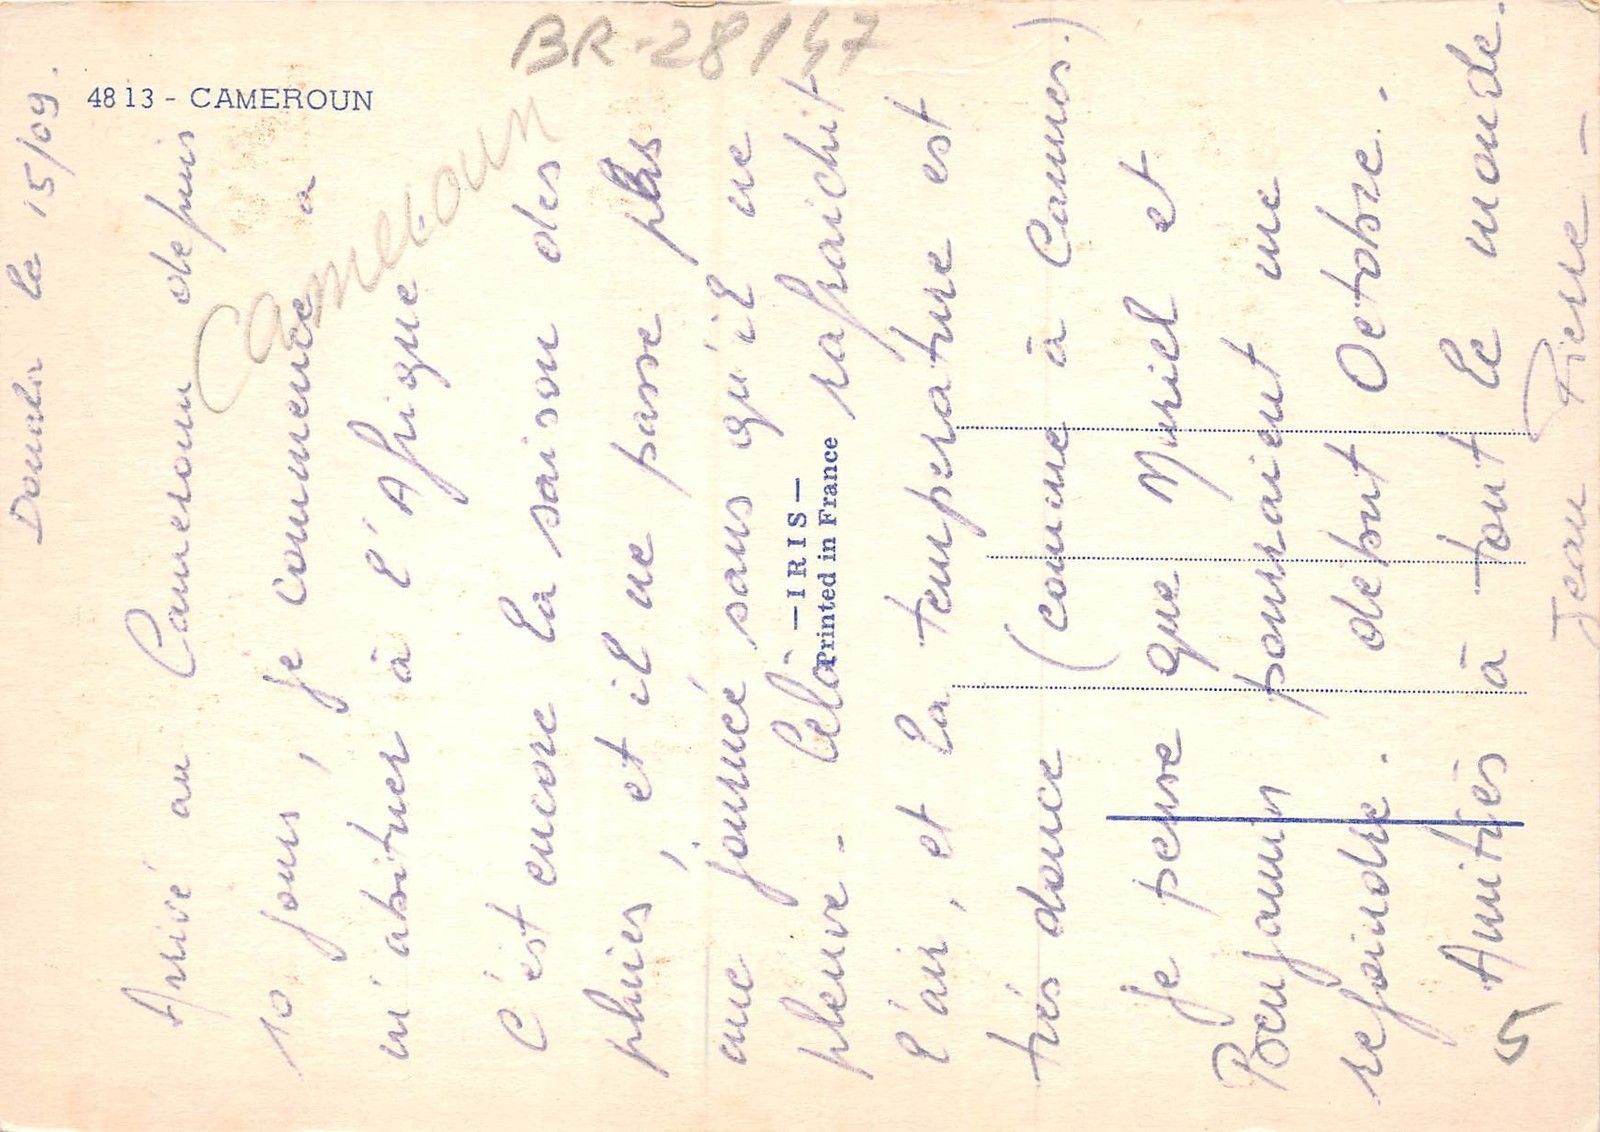 4813 - CAMEROUN
BR-28147
Cameroun
Douala le 15/09.
Arrivé au Cameroun depuis
10 jours, je commence a
m'abituer à l'Afrique
C'est encore la saison des
pluies, et il ne passe plus
une journée sans qu'il ne
pleuve - Celà rafraichit
l'air, et la temperature est
très douce (comme à Cannes.)
Je pense que Muriel et
Benjamin pourraient me
rejoindre. debut Octobre.
Amitiés à tout le monde.
Jean Pierre -
5
— I R I S —
Printed in France